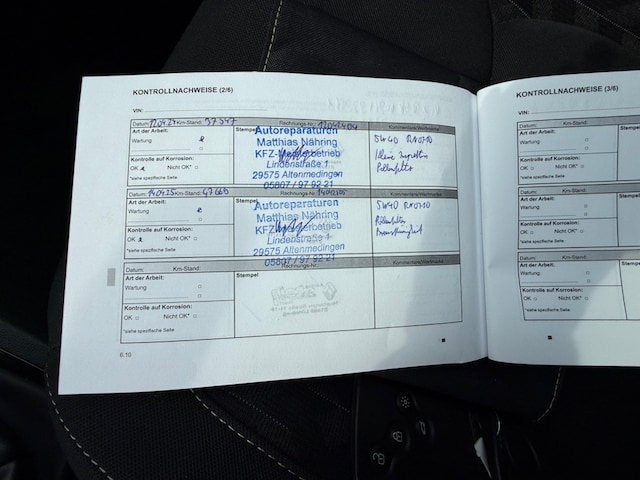 KONTROLLNACHWEISE (2/6)
VIN:
Datum: 12.04.24 Km-Stand: 37547 Rechnungs-Nr.: 12042404 Kommentare/Werkmarke
Art der Arbeit:
Wartung
Kontrolle auf Korrosion:
OK Nicht OK*
*siehe spezifische Seite
Stempel
Autoreparaturen
Matthias Nähring
KFZ-Meisterbetrieb
Lindenstraße 1
29575 Altenmedingen
05807 / 97 92 21
5W40 RN0710
kleine Inspektion
Pollenfilter
Datum: 14.04.25 Km-Stand: 47669 Rechnungs-Nr.: Kommentare/Werkmarke
Art der Arbeit:
Wartung
Kontrolle auf Korrosion:
OK Nicht OK*
*siehe spezifische Seite
Stempel
Autoreparaturen
Matthias Nähring
KFZ-Meisterbetrieb
Lindenstraße 1
29575 Altenmedingen
05807 / 97 92 21
5W40 RN0710
Pollenfilter
Bremsflüssigkeit
Datum: Km-Stand: Rechnungs-Nr.: Kommentare/Werkmarke
Art der Arbeit:
Wartung
Kontrolle auf Korrosion:
OK Nicht OK*
*siehe spezifische Seite
Stempel
6.10
KONTROLLNACHWEISE (3/6)
VIN:
Datum: Km-Stand:
Art der Arbeit:
Wartung
Kontrolle auf Korrosion:
OK Nicht OK*
*siehe spezifische Seite
Stempe
Datum: Km-Stand:
Art der Arbeit:
Wartung
Kontrolle auf Korrosion:
OK Nicht OK*
*siehe spezifische Seite
Stempe
Datum: Km-Stand:
Art der Arbeit:
Wartung
Kontrolle auf Korrosion:
OK Nicht OK*
*siehe spezifische Seite
Stemp